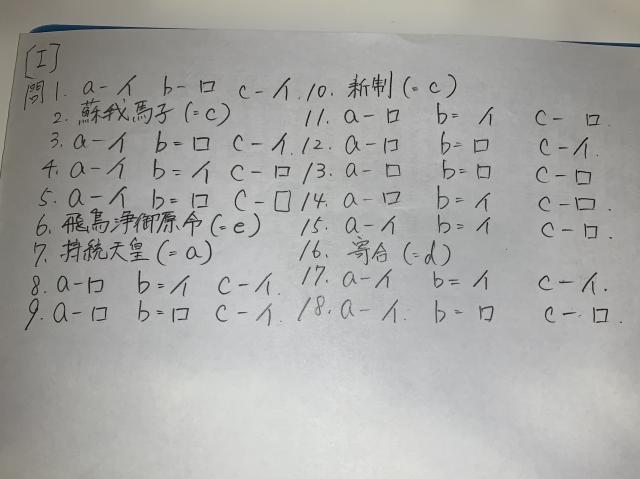 [I]
問1. a-イ b-ロ c-イ. 10. 新制(=c)
2. 蘇我馬子(=c) 11. a-ロ b=イ c-ロ.
3. a-イ b=ロ c-イ. 12. a-ロ b=ロ c-イ.
4. a-イ b=イ c-ロ 13. a-ロ b=ロ c-ロ
5. a-イ b=ロ c-ロ 14. a-ロ b=イ c-ロ.
6. 飛鳥浄御原令(=e) 15. a-イ b=イ c-ロ.
7. 持統天皇(=a) 16. 寄合(=d)
8. a-ロ b=イ c-イ. 17. a-イ b=イ c-イ.
9. a-ロ b=ロ c-イ. 18. a-イ. b=ロ c-ロ.